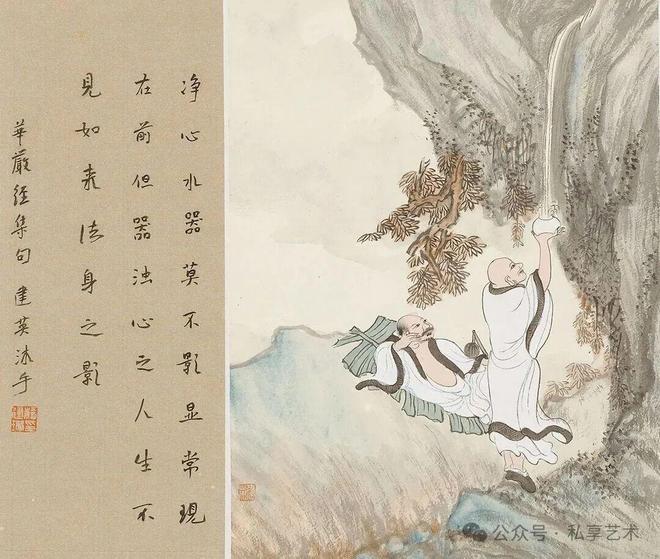 净心水器莫不影显常現
在前但器浊心之人生不
見如来法身之影
華嚴經集句 建英沐手
公众号·私享艺术